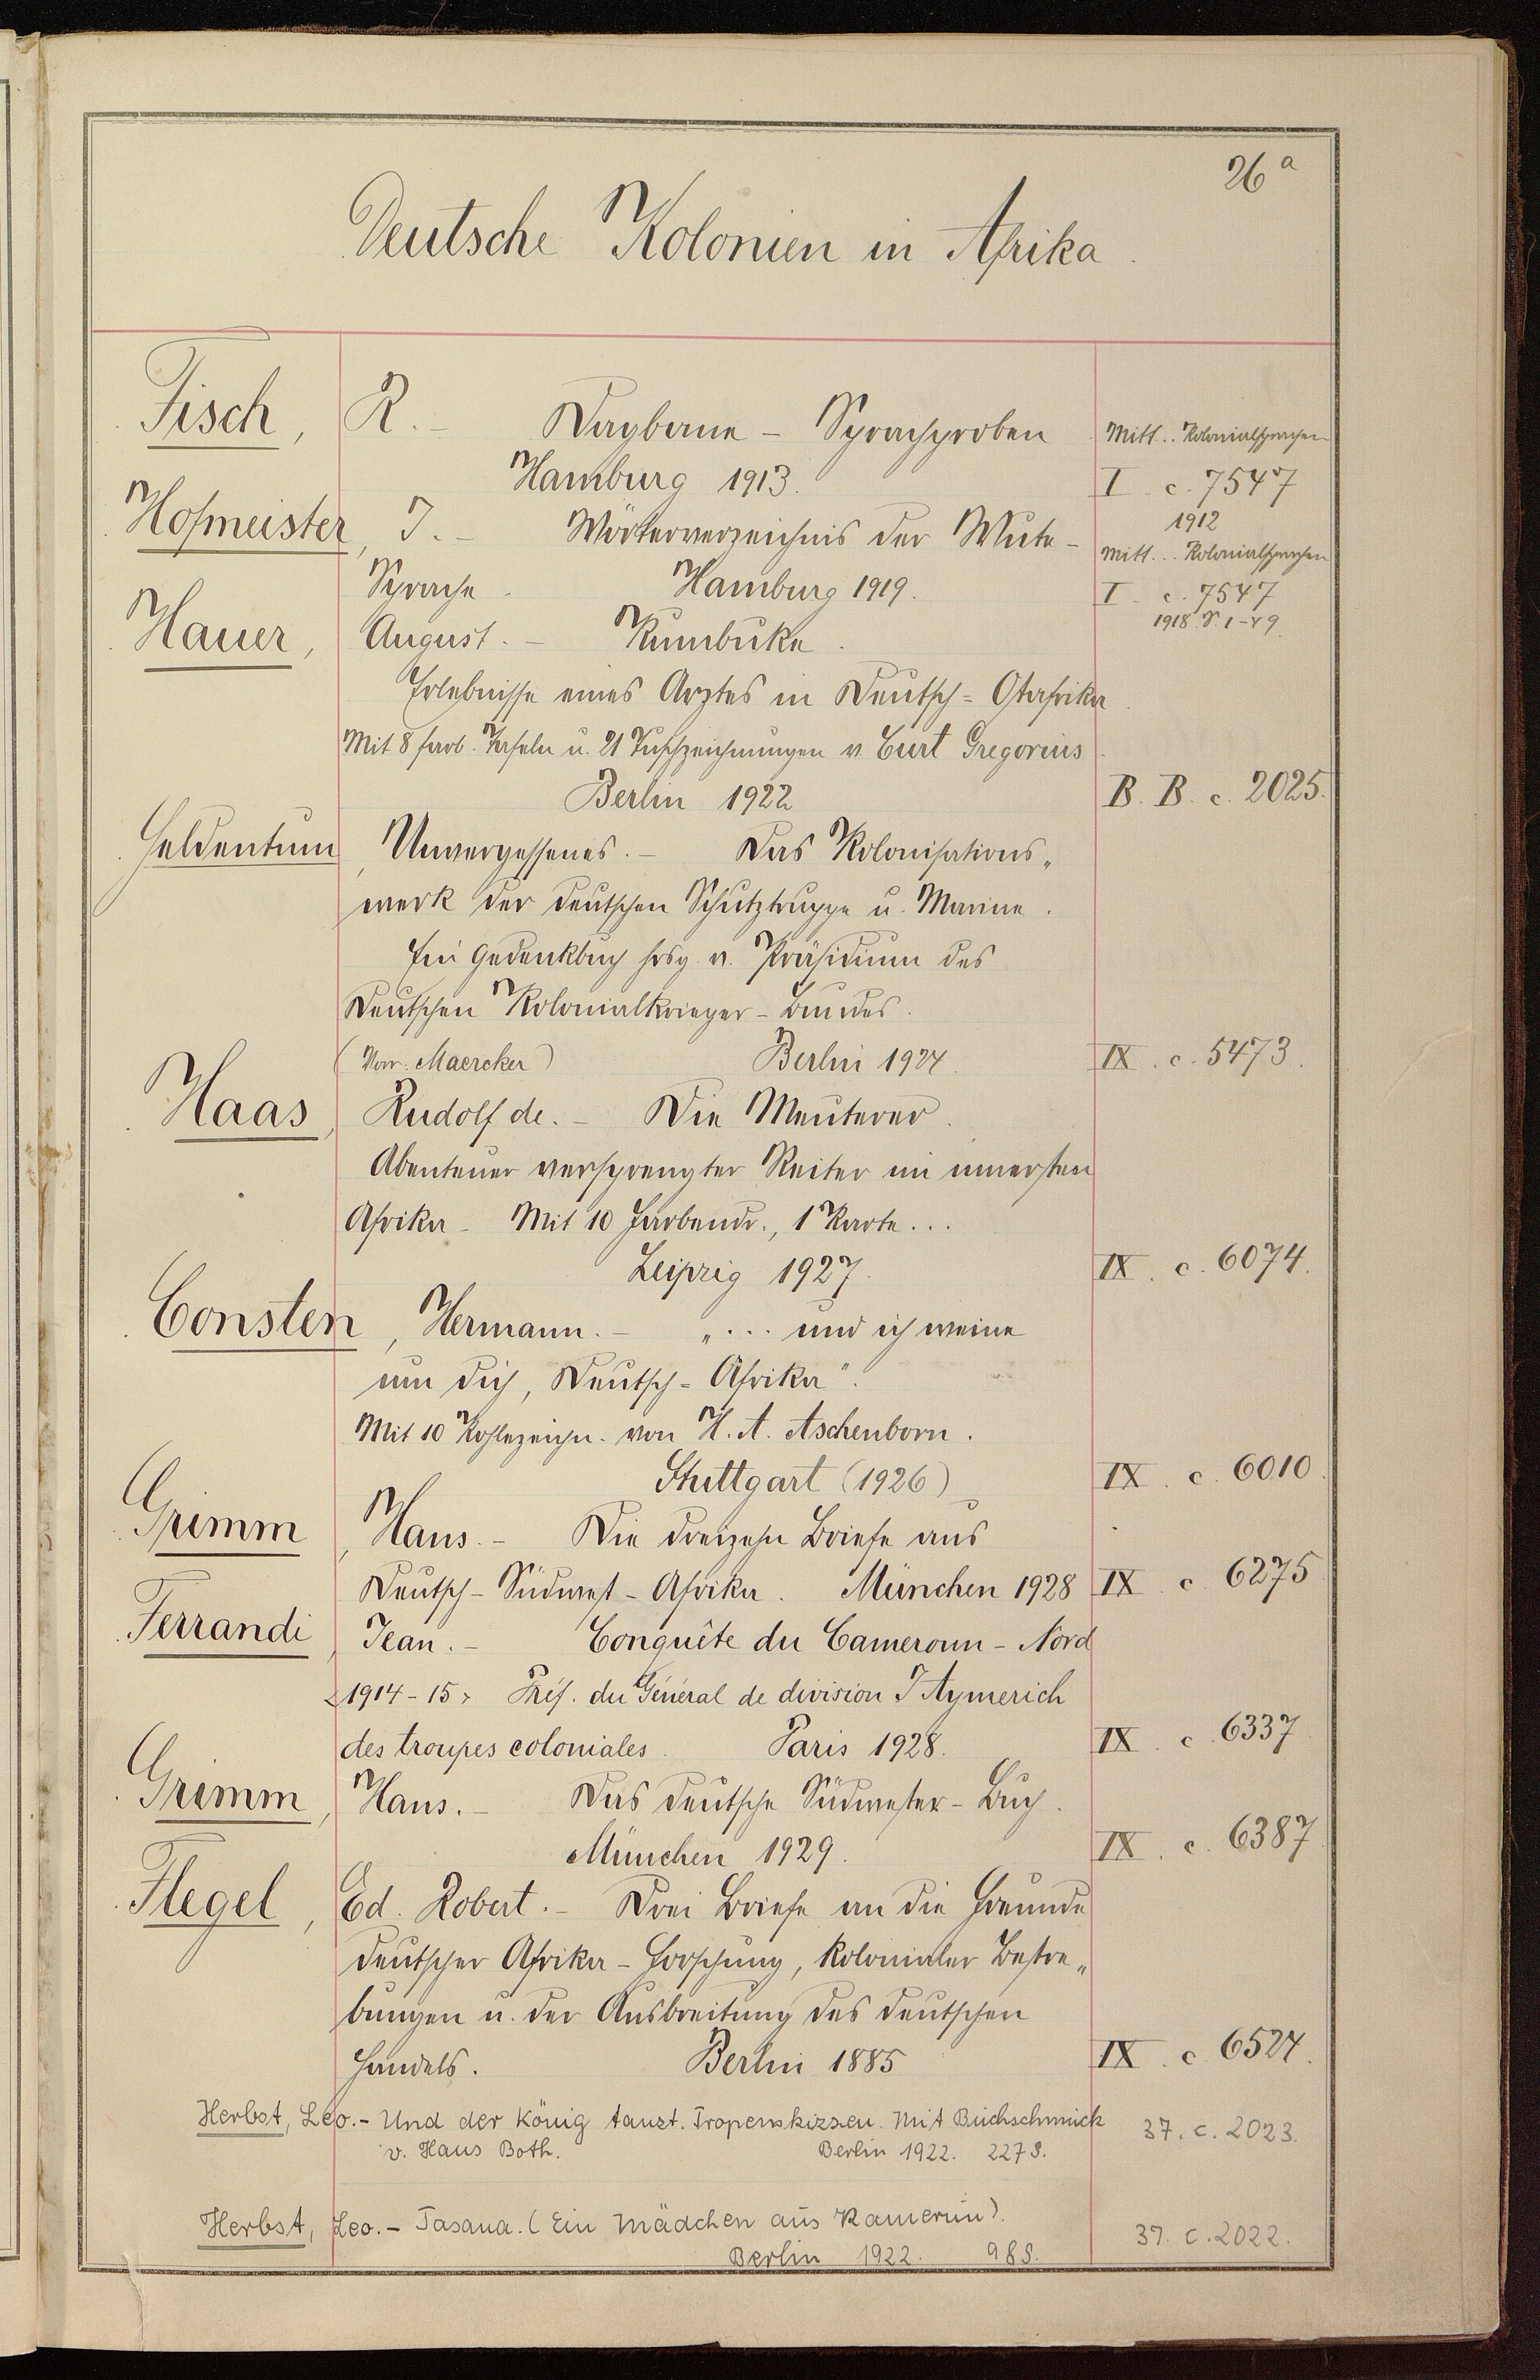 26a
Deutsche Kolonien in Afrika.
Fisch, R. – Dagbane – Sprachproben Mitt.. Kolonialsprachen
Hamburg 1913. I. c. 7547
1912
Hofmeister, J. – Wörterverzeichnis der Wute- Mitt... Kolonialsprachen
Sprache. Hamburg 1919. I. c. 7547
1918. S. 1-49.
Hauer, August. – Kumbuke.
Erlebnisse eines Arztes in Deutsch-Ostafrika.
Mit 8 farb. Tafeln u. 21 Tuschzeichnungen v. Curt Gregorius.
Berlin 1922 B. B. c. 2025.
Heldentum, Unvergessenes. – Das Kolonisations„
werk der deutschen Schutztruppe u. Marine.
Ein Gedenkbuch hrsg. v. Präsidium des
Deutschen Kolonialkrieger-Bundes.
(Vorr. Maercker) Berlin 1924. IX. c. 5473.
Haas, Rudolf de. – Die Meuterer.
Abenteuer versprengter Reiter im innersten
Afrika – Mit 10 Farbendr., 1 Karte...
Leipzig 1927. IX. c. 6074.
Consten, Hermann. – „... und ich weine
um dich, Deutsch-Afrika".
Mit 10 Kohlezeichn. von H. A. Aschenborn.
Stuttgart (1926) IX. c. 6010.
Grimm, Hans. – Die dreizehn Briefe aus
Deutsch-Südwest-Afrika. München 1928 IX c. 6275
Ferrandi, Jean. – Conquête du Cameroun-Nord
<1914-15> Préf. du Général de division J Aymerich
des troupes coloniales. Paris 1928. IX. c. 6337
Grimm, Hans. – Das deutsche Südwester-Buch.
München 1929. IX. c. 6387.
Flegel, Ed. Robert. – Drei Briefe an die Freunde
deutscher Afrika-Forschung, kolonialer Bestre„
bungen u. der Ausbreitung des deutschen
Handels. Berlin 1885 IX. c. 6524.
Herbst, Leo. – Und der König tanzt. Tropenskizzen. Mit Buchschmuck 37. c. 2023.
v. Hans Both. Berlin 1922. 227 S.
Herbst, Leo. – Tasana. (Ein Mädchen aus Kamerun). 37. c. 2022.
Berlin 1922. 98 S.